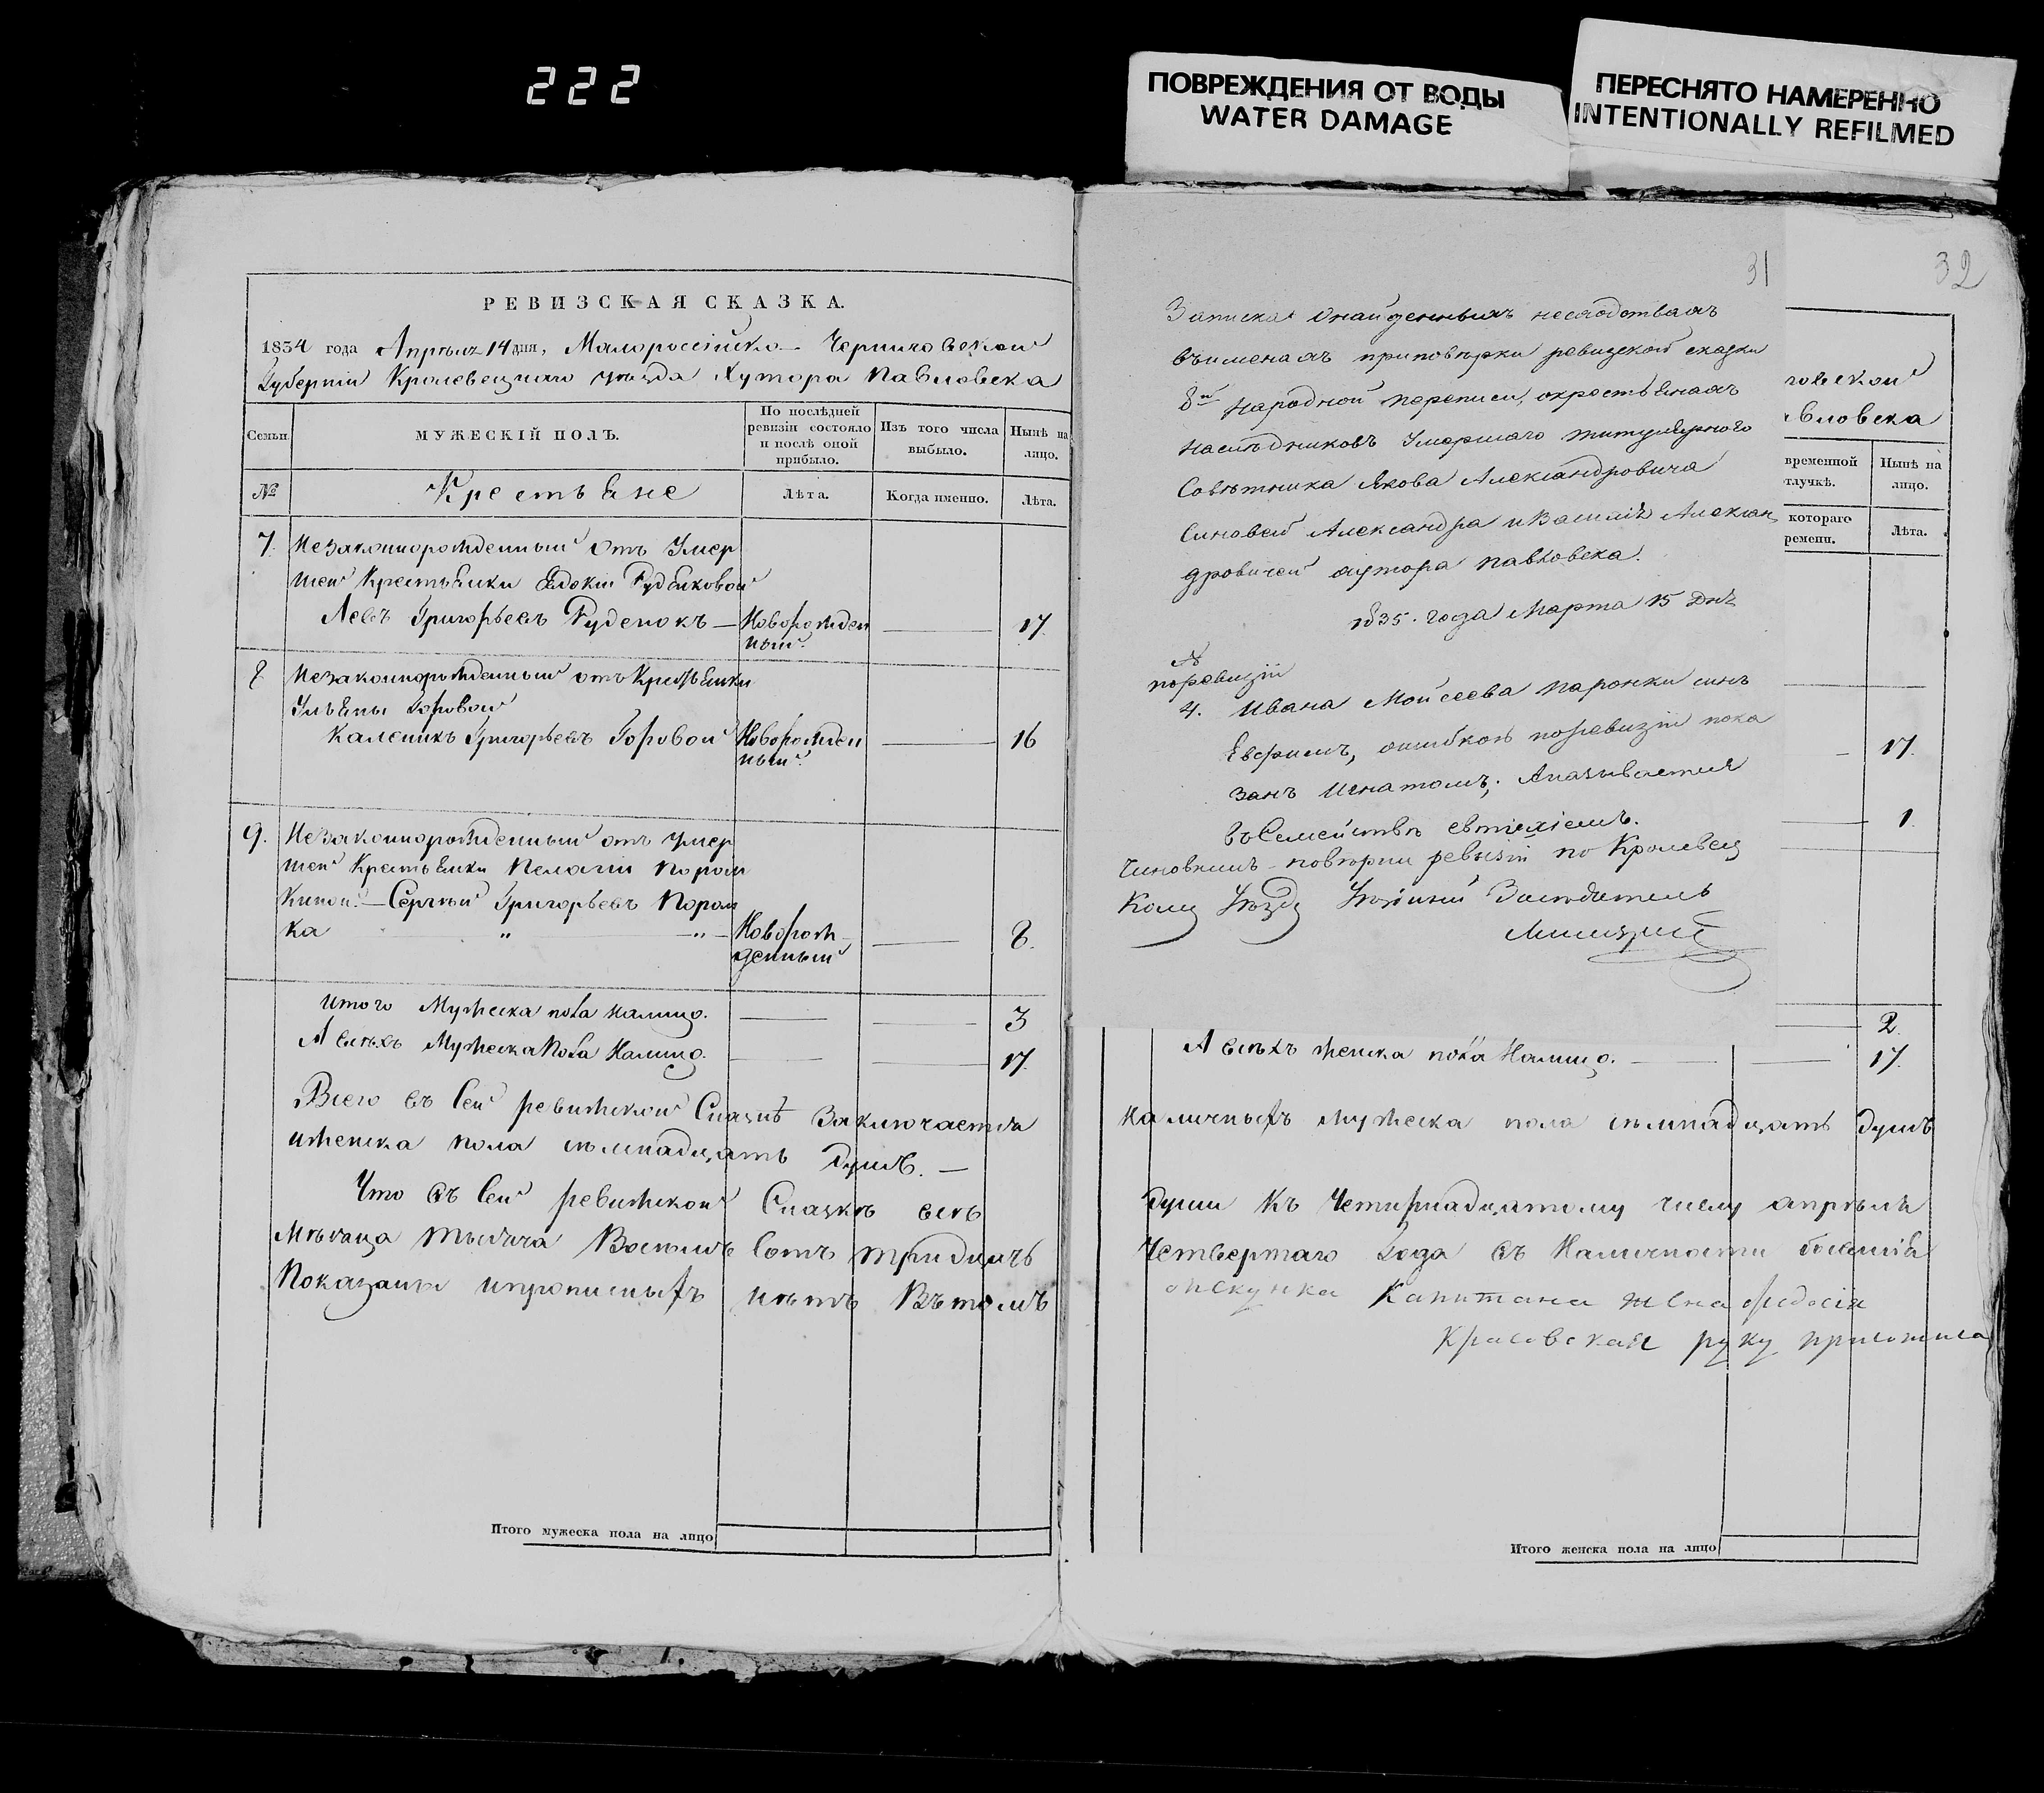 222
ПОВРЕЖДЕНИЯ ОТ ВОДЫ
WATER DAMAGE
ПЕРЕСНЯТО НАМЕРЕННО
INTENTIONALLY REFILMED
РЕВИЗСКАЯ СКАЗКА.
1834 года Апрѣля 14 дня, Малороссійско-Черниговской
Губерніи Кролевецкаго уѣзда Хутора Павловска
Семьи.
МУЖЕСКІЙ ПОЛЪ.
По послѣдней ревизіи состояло и послѣ оной прибыло.
Изъ того числа выбыло.
Нынѣ на лицо.
№
Крестьяне
Лѣта.
Когда именно.
Лѣта.
7. Незаконнорожденный отъ Умер
шей Крестьянки Евдокіи Руденковой
Левъ Григорьевъ Руденокъ — Новорожден
ный. — 17.
8 Незаконнорожденный отъ Крестьянки
Ульяны Горовой
Каленикъ Григорьевъ Горовой Новорожден
ный. — 16
9. Незаконнорожденный отъ умер
шей Крестьянки Пелагіи Порон
киной. — Сергѣй Григорьевъ Порон
ка " " — Новорож-
денный — 8.
Итого Мужеска пола налицо. — — 3
А всѣхъ Мужеска Пола Налицо. — — 17.
Всего въ Сей ревижской Сказкѣ заключается
иженска пола семнадцать душъ. —
Что въ Сей ревижской Сказкѣ всѣ
Мѣсяца тысяча Восемъ Сотъ тридцать
Показаны ипрописныхъ нѣтъ Вътомъ
Итого мужеска пола на лицо
31
Записка Онайденныхъ несходствахъ
въименахъ приповѣрки ревизской сказки
8й Народной переписи, окрестьянахъ
Наслѣдниковъ Умершаго титулярного
Совѣтника Якова Александровича
Синовей Александра иВасилія Алексан
дровичей хутора Павловска.
1835. года Марта 15 Дня
№
поревизіи
4. Ивана Мойсеева Паронки синъ
Евфимъ, ошибкою поревизіи пока
занъ Игнатомъ; Аназывается
въСемействѣ евтихіемъ.
Чиновникъ повѣрки ревизіи по Кролевец
кому Уѣзду
32
говской
авловска
временной
отлучкѣ.
Нынѣ на
лицо.
котораго
времени.
Лѣта.
— 17.
— 1.
— 2.
А всѣхъ женска пола Налицо. — — 17.
Наличныхъ мужеска пола семнадцать душъ
души Къ Четирнадцатому числу апрѣля
Четвертаго Года въ Наличности бывшія
опекунка Капитана жена федосія
Красовская руку приложила
Итого женска пола на лицо